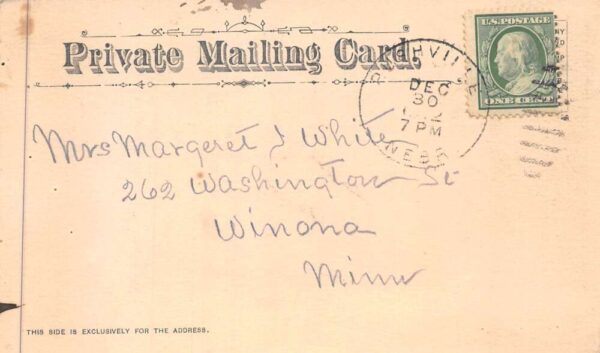 Private Mailing Card.
U.S. POSTAGE
ONE CENT
DEC
30
7 PM
NEBR
Mrs Margeret J White
262 Washington St
Winona
Minn
THIS SIDE IS EXCLUSIVELY FOR THE ADDRESS.